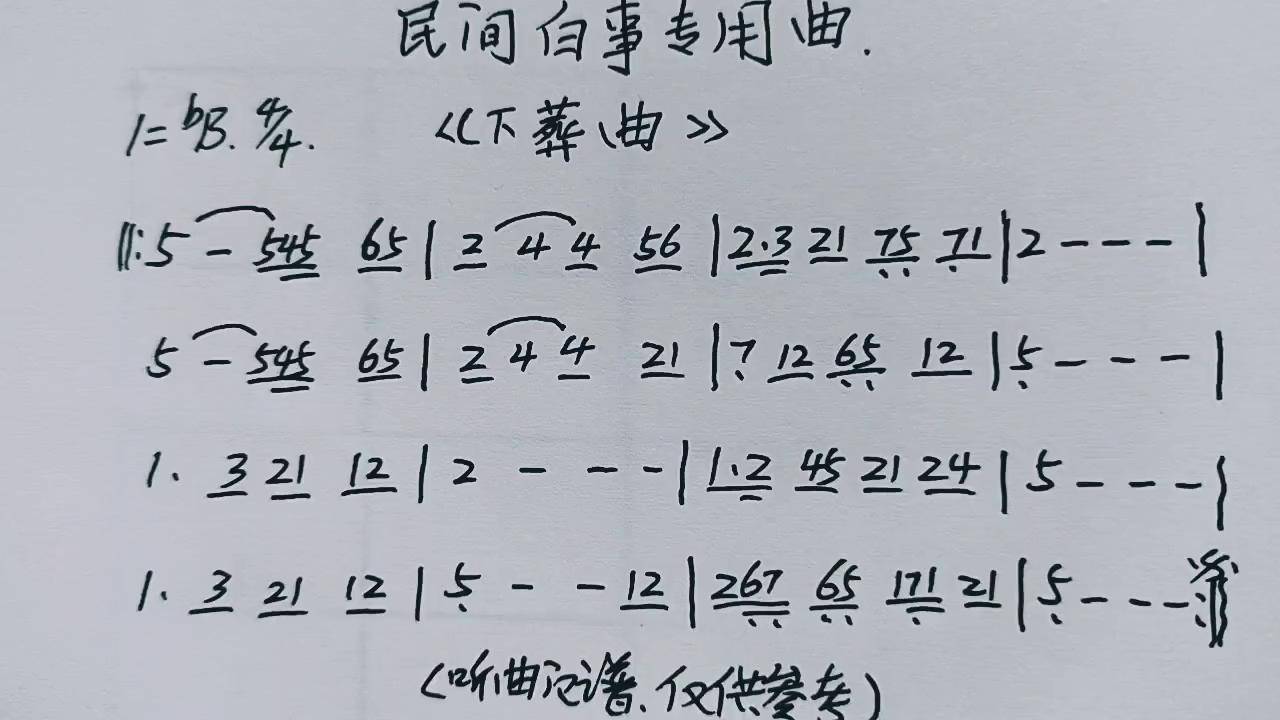 民间白事专用曲.
1=bB. 4/4. 《下葬曲》
‖:5 - 545 65 | 2 4 4 56 | 2.3 21 75 71 | 2 - - - |
5 - 545 65 | 2 4 4 21 | 7 12 65 12 | 5 - - - |
1. 3 21 12 | 2 - - - | 1.2 45 21 24 | 5 - - - |
1. 3 21 12 | 5 - - 12 | 267 65 171 21 | 5 - - - :‖
(听曲记谱.仅供参考)